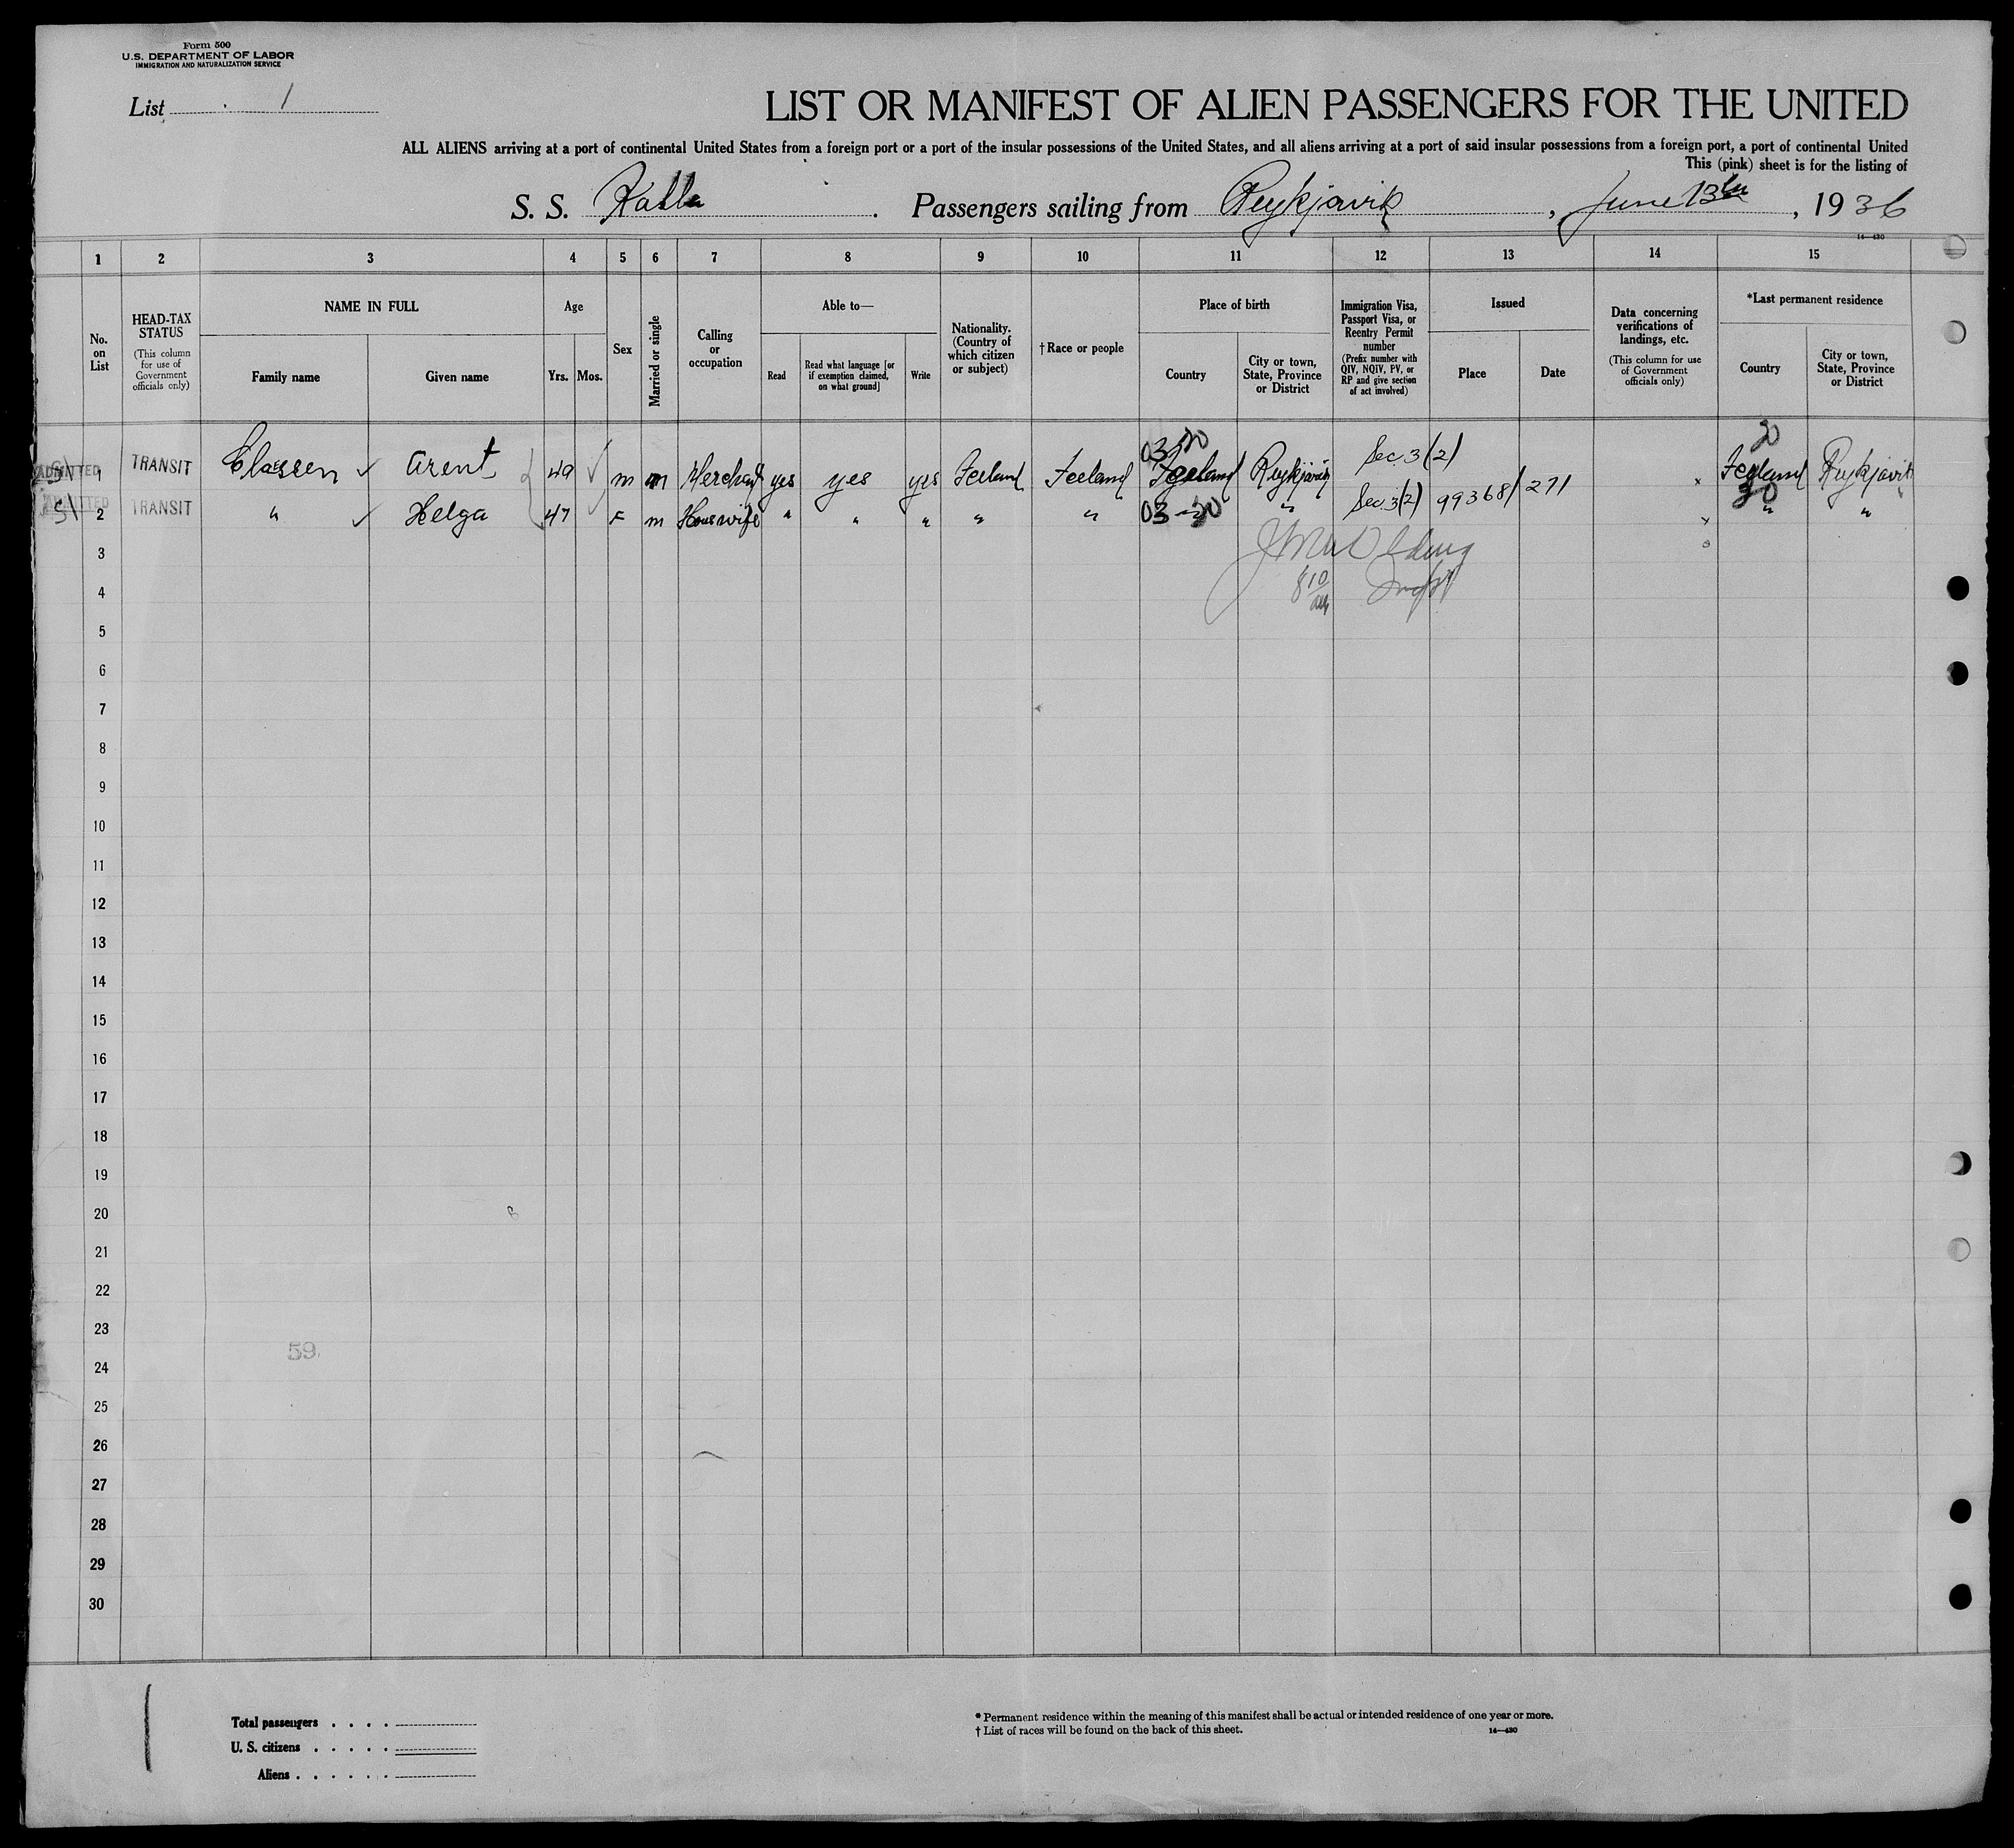 Form 500
U.S. DEPARTMENT OF LABOR
IMMIGRATION AND NATURALIZATION SERVICE
List 1
LIST OR MANIFEST OF ALIEN PASSENGERS FOR THE UNITED
ALL ALIENS arriving at a port of continental United States from a foreign port or a port of the insular possessions of the United States, and all aliens arriving at a port of said insular possessions from a foreign port, a port of continental United
This (pink) sheet is for the listing of
S. S. Katla . Passengers sailing from Reykjavik , June 13th , 1936
14—430
1 2 3 4 5 6 7 8 9 10 11 12 13 14 15
No. on List
HEAD-TAX STATUS
(This column for use of Government officials only)
NAME IN FULL
Family name
Given name
Age
Yrs. Mos.
Sex
Married or single
Calling or occupation
Able to—
Read
Read what language [or if exemption claimed, on what ground]
Write
Nationality. (Country of which citizen or subject)
† Race or people
Place of birth
Country
City or town, State, Province or District
Immigration Visa, Passport Visa, or Reentry Permit number
(Prefix number with QIV, NQIV, PV, or RP and give section of act involved)
Issued
Place
Date
Data concerning verifications of landings, etc.
(This column for use of Government officials only)
*Last permanent residence
Country
City or town, State, Province or District
03 20 20
ADMITTED 1 TRANSIT Claessen ✓ Arent 49 ✓ m m Merchant yes yes yes Iceland Iceland Iceland Reykjavik Sec 3(2) Iceland Reykjavik
99368/271
ADMITTED 2 TRANSIT " ✓ Helga 47 F m Houswife " " " " " 03-20 " Sec 3(2) 30 " "
3
8 10 am
4
5
6
7
8
9
10
11
12
13
14
15
16
17
18
19
20
21
22
23
59
24
25
26
27
28
29
30
Total passengers . . . .
U. S. citizens . . . . .
Aliens . . . . . .
* Permanent residence within the meaning of this manifest shall be actual or intended residence of one year or more.
† List of races will be found on the back of this sheet.
14—430